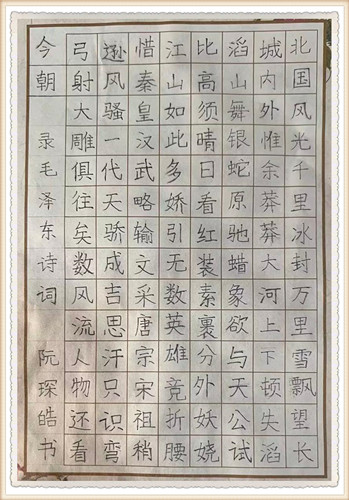 北国风光千里冰封万里雪飘望长
城内外惟余莽莽大河上下顿失滔
滔山舞银蛇原驰蜡象欲与天公试
比高须晴日看红装素裹分外妖娆
江山如此多娇引无数英雄竞折腰
惜秦皇汉武略输文采唐宗宋祖稍
逊风骚一代天骄成吉思汗只识弯
弓射大雕俱往矣数风流人物还看
今朝 录毛泽东诗词 阮琛皓书